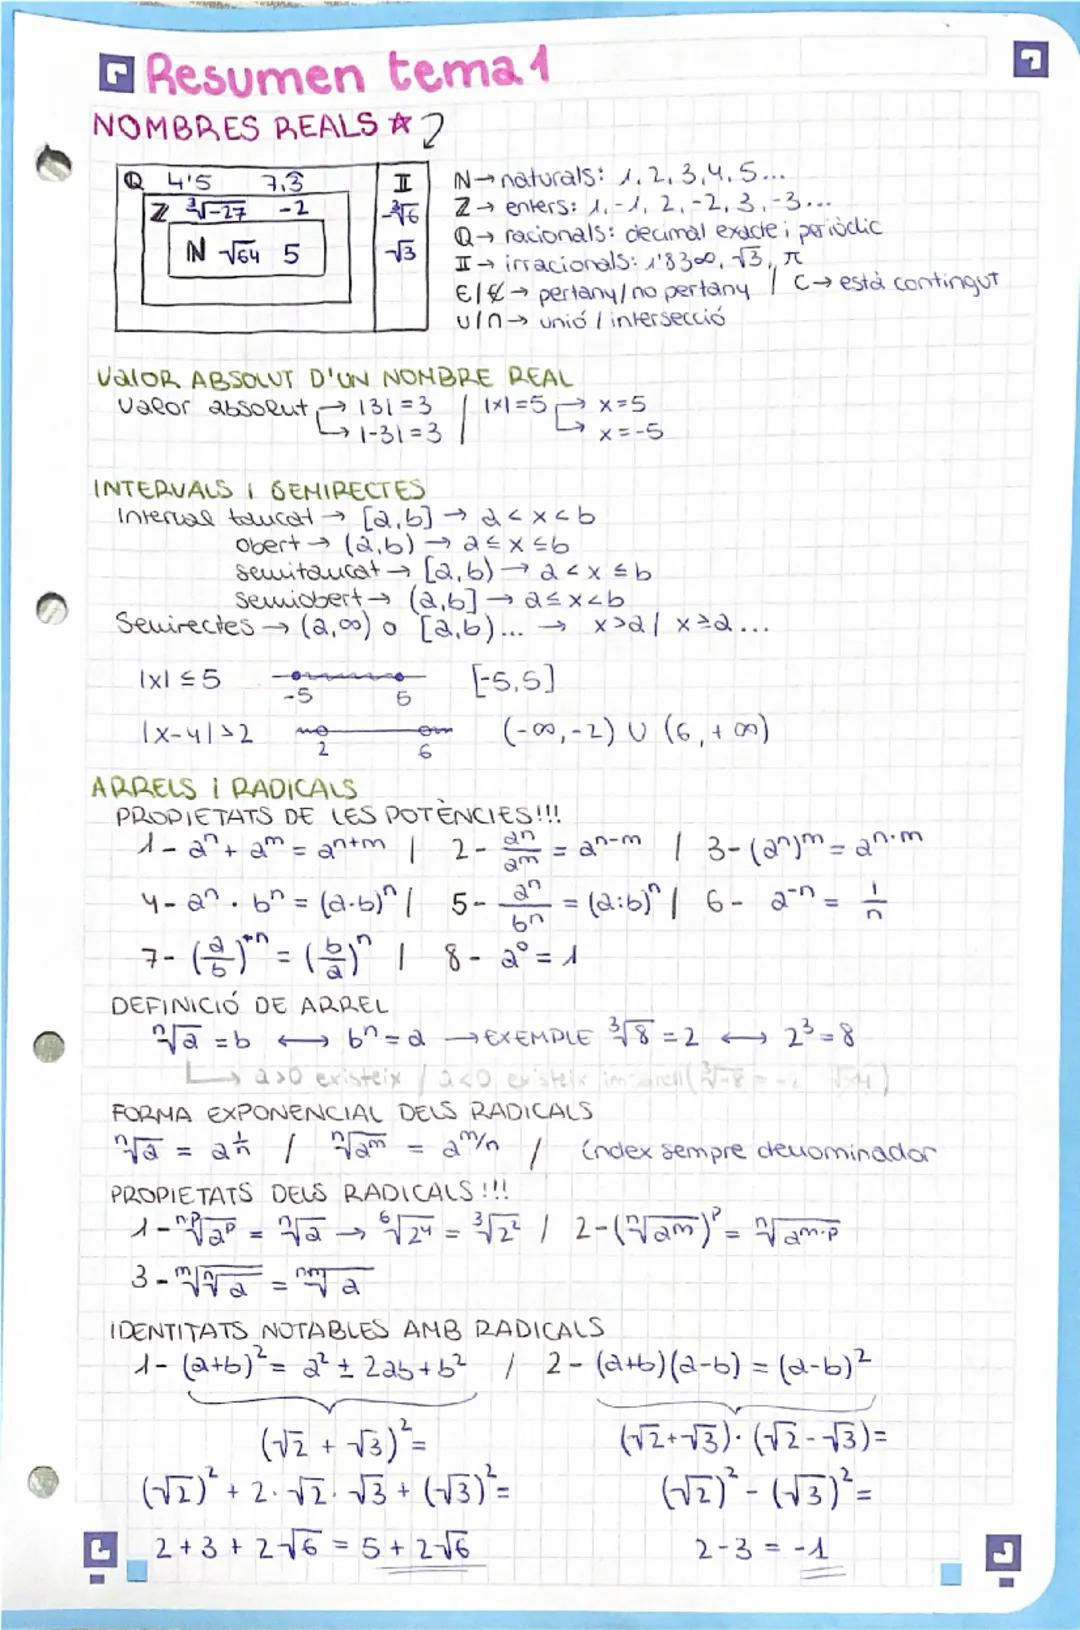 Resumen tema 1
NOMBRES REALS ☆
Q 4'5 7,3̂ II
Z ∛-27 -2 ∛6
N √64 5 √3
N→ naturals: 1, 2, 3, 4, 5...
Z→ enters: 1, -1, 2, -2, 3, -3...
Q→ racionals: decimal exacte i periòdic
II→ irracionals: 1'83∞, √3, π
∈/∉→ pertany/no pertany / ⊂→ està contingut
∪/∩→ unió / intersecció
VALOR ABSOLUT D'UN NOMBRE REAL
Valor absolut → |3|=3 / |x|=5 → x=5
↳ |-3|=3 ↳ x=-5
INTERVALS I SEMIRECTES
Interval tancat → [a,b] → a<x<b
obert → (a,b) → a≤x≤b
semitancat → [a,b) → a<x≤b
semiobert → (a,b] → a≤x<b
Semirectes → (a,∞) o [a,b)... → x>a / x≥a...
|x| ≤ 5 -5 5 [-5,5]
|x-4|>2 2 6 (-∞,-2) ∪ (6,+∞)
ARRELS I RADICALS
PROPIETATS DE LES POTÈNCIES!!!
1- aⁿ + aᵐ = aⁿ⁺ᵐ / 2- aⁿ/aᵐ = aⁿ⁻ᵐ / 3- (aⁿ)ᵐ = aⁿ·ᵐ
4- aⁿ · bⁿ = (a·b)ⁿ / 5- aⁿ/bⁿ = (a:b)ⁿ / 6- a⁻ⁿ = 1/n
7- (a/b)⁻ⁿ = (b/a)ⁿ / 8- a⁰ = 1
DEFINICIÓ DE ARREL
ⁿ√a = b ⟷ bⁿ = a → EXEMPLE ³√8 = 2 ⟷ 2³ = 8
↳ a>0 existeix / a<0 existeix
FORMA EXPONENCIAL DELS RADICALS
ⁿ√a = a^1/n / ⁿ√aᵐ = a^m/n / índex sempre denominador
PROPIETATS DELS RADICALS!!!
1- ⁿᵖ√aᵖ = ⁿ√a → ⁶√2⁴ = ³√2² / 2- (ⁿ√aᵐ)ᵖ = ⁿ√aᵐ·ᵖ
3- ᵐ√ⁿ√a = ⁿᵐ√a
IDENTITATS NOTABLES AMB RADICALS
1- (a+b)² = a² ± 2ab + b² / 2- (a+b)(a-b) = (a-b)²
(√2 + √3)² = (√2+√3)·(√2-√3)=
(√2)² + 2·√2·√3 + (√3)² = (√2)² - (√3)² =
2 + 3 + 2√6 = 5 + 2√6 2-3 = -1